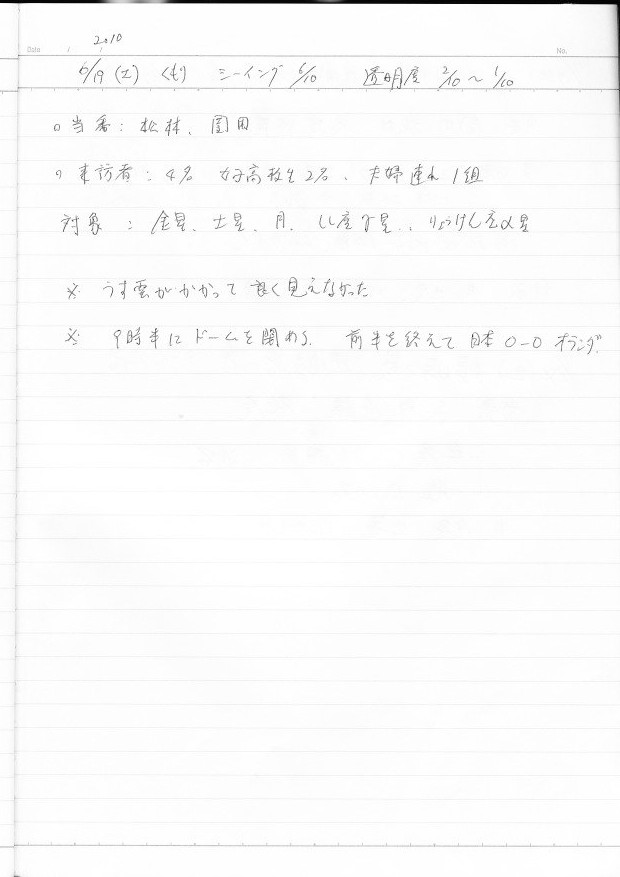 Date / /
2010
No.
6/19 (土) くもり シーイング 6/10 透明度 2/10 ～ 1/10
○ 当番 : 松林、園田
○ 来訪者 : 4名 女子高校生2名、夫婦連れ1組
対象 : 金星、土星、月、しし座γ星、りょうけん座α星
※ うす雲がかかって良く見えなかった
※ 9時半にドームを閉める. 前半を終えて日本0-0オランダ.